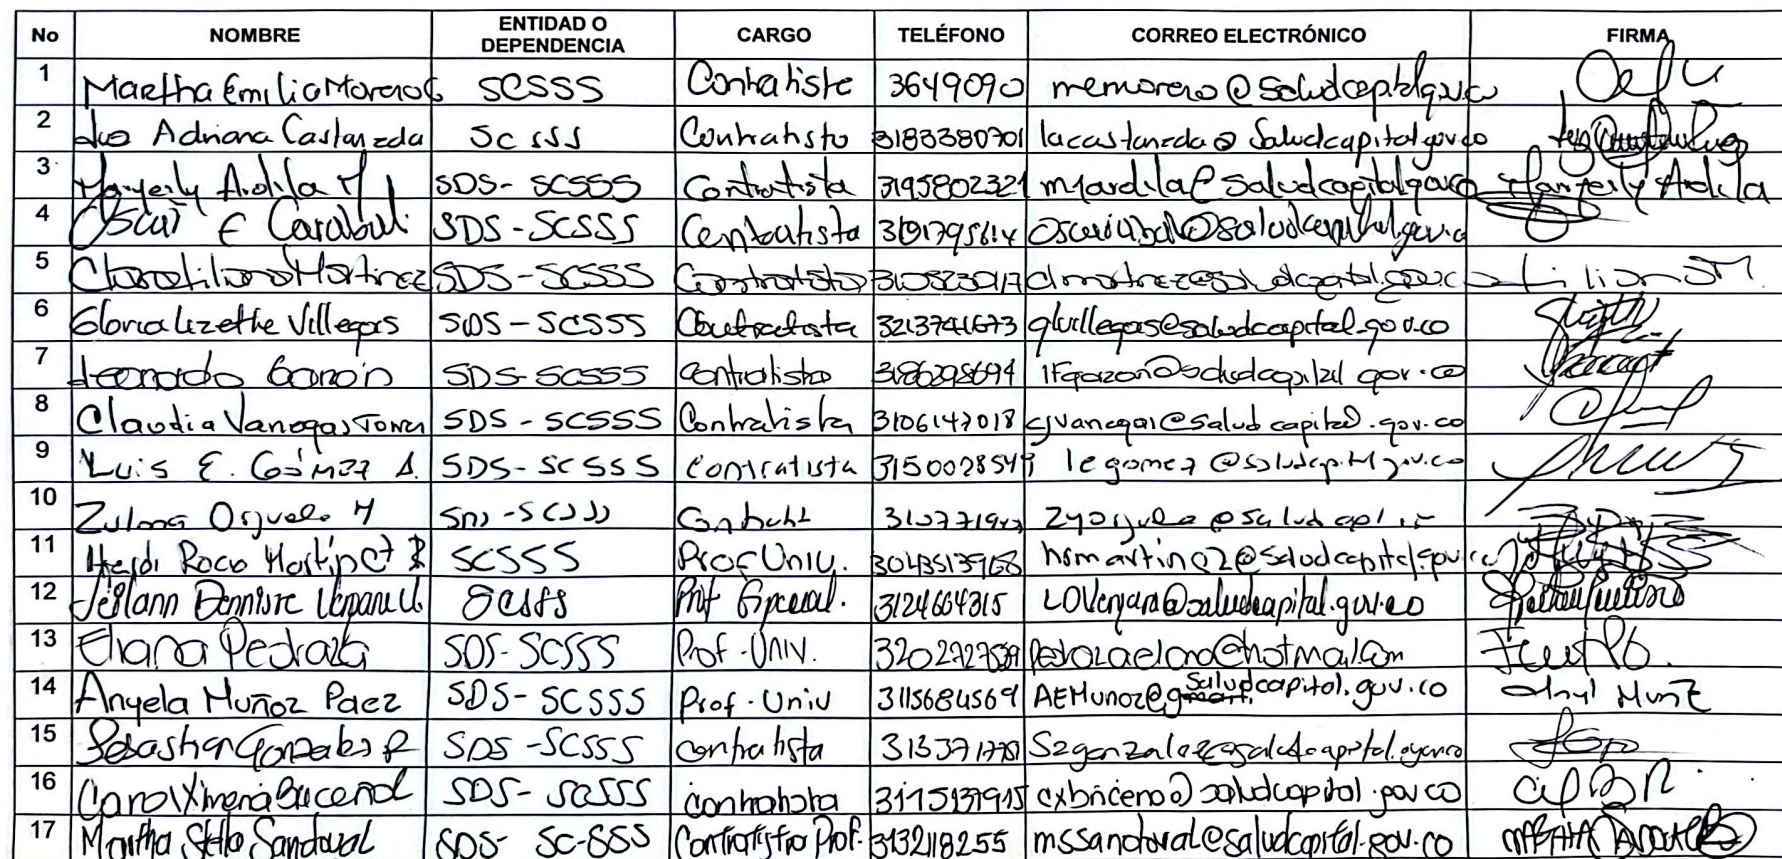 No NOMBRE ENTIDAD O DEPENDENCIA CARGO TELÉFONO CORREO ELECTRÓNICO FIRMA
1 Martha Emilia Moreno G SCSSS Contratista 3649090 memoreno@saludcapital.gov.co
2 Luz Adriana Castañeda SCSSS Contratista 3183380701 lacastaneda@saludcapital.gov.co
3 Mayerly Ardila M SDS-SCSSS Contratista 3195802321 myardila@saludcapital.gov.co Mayerly Ardila
4 Oscar E Carabali SDS-SCSSS Contratista
5 Clara Liliana Martinez SDS-SCSSS Contratista Liliana M
6 Gloria Lizethe Villegas SDS-SCSSS Contratista 3213741673 glvillegas@saludcapital.gov.co
7 Leonardo Garzón SDS-SCSSS Contratista 3186298694 lfgarzon@saludcapital.gov.co
8 Claudia Vanegas Torres SDS-SCSSS Contratista 3106147018 cjvanegas@saludcapital.gov.co
9 Luis E. Gómez A. SDS-SCSSS Contratista legomez@saludcapital.gov.co
10 Zulma SDS-SCSSS
11 Heidi Rocio Martinez SCSSS Prof Univ. hsmartinez@saludcapital.gov.co
12 SCSSS Prof Especial. 3124664315 LOVergara@saludcapital.gov.co
13 Eliana Pedraza SDS-SCSSS Prof-Univ. pedrazaeliana@hotmail.com
14 Angela Muñoz Paez SDS-SCSSS Prof-Univ 3115684569 AEMunoz@saludcapital.gov.co
15 Sebastian Gonzalez R SDS-SCSSS contratista
16 Carol Ximena Briceño SDS-SCSSS contratista 3175137915 cxbriceno@saludcapital.gov.co
17 Martha Stella Sandoval SDS-SC-SSS Contratista Prof. 3132118255 mssandoval@saludcapital.gov.co